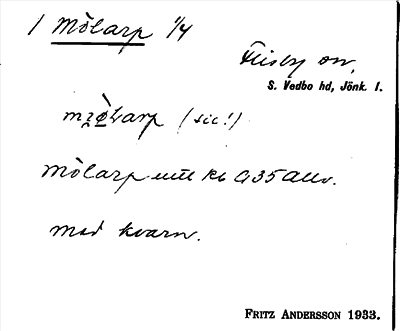 1 Mölarp 1/4
Flisby sn,
S. Vedbo hd, Jönk. l.
(sic!)
Mölarp mtl Rb 0,35 Allv.
med kvarn.
FRITZ ANDERSSON 1933.